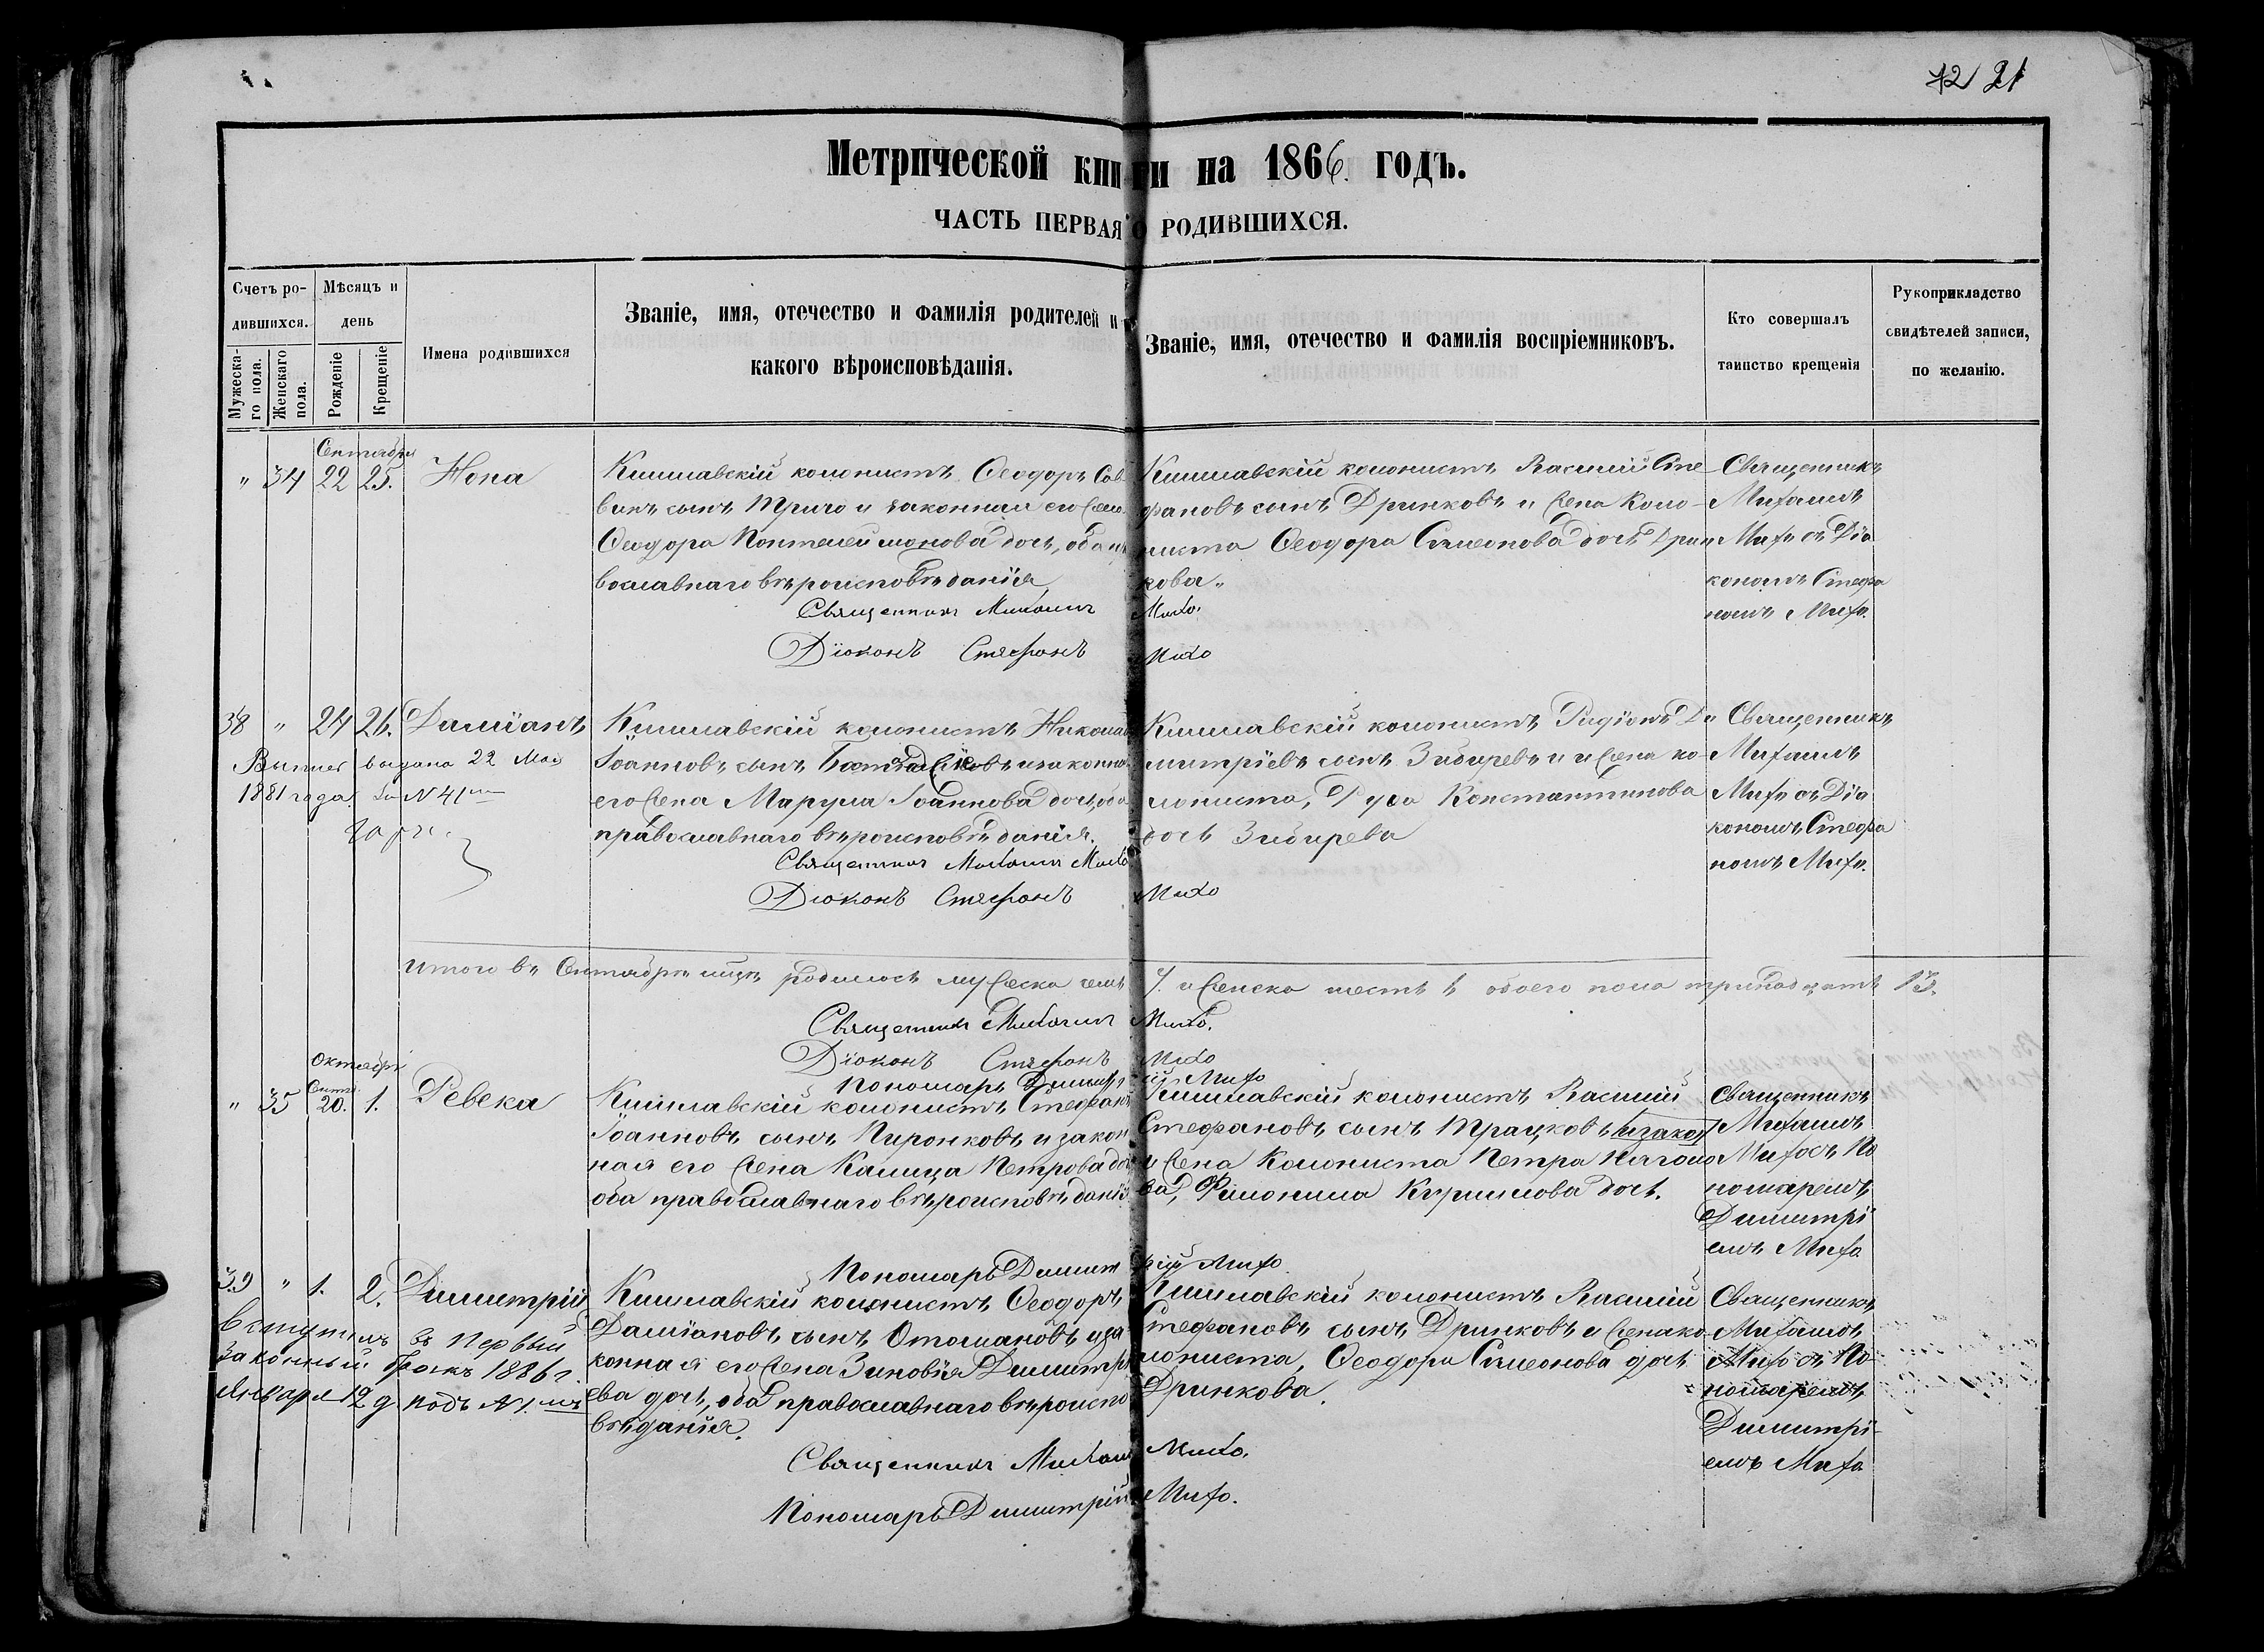 12 21
Метрической книги на 1866 годъ.
ЧАСТЬ ПЕРВАЯ О РОДИВШИХСЯ.
Счетъ ро-
дившихся.
Мужеска-
го пола.
Женскаго
пола.
Мѣсяцъ и
день
Рожденіе
Крещеніе
Имена родившихся
Званіе, имя, отечество и фамилія родителей и
какого вѣроисповѣданія.
Званіе, имя, отечество и фамилія воспріемниковъ.
Кто совершалъ
таинство крещенія
Рукоприкладство
свидѣтелей записи,
по желанію.
Сентября
" 34 22 25. Нона
Кишлавскій колонистъ Ѳеодоръ Сав
винъ сынъ Триго и законная его жена
Ѳеодора Пантелеймонова дочь, оба
вославнаго вѣроисповѣданія
Священникъ Михаилъ Михо.
Діаконъ Стефанъ Михо
Кишлавскій колонистъ Василій Сте
фановъ сынъ Дринковъ и жена коло-
ниста Ѳеодора Симеонова дочь Дрин
кова.
Священникъ
Михаилъ
Михо съ Діа
кономъ Стефа
номъ Михо.
38 " 24 26. Даміанъ
выдана 22 Мая
1881 года за N 41
Кишлавскій колонистъ Николай
Іоанновъ сынъ и законна
его жена Марула Іоаннова дочь, оба
православнаго вѣроисповѣданія.
Священникъ Михаилъ Михо
Діаконъ Стефанъ Михо
Кишлавскій колонистъ Ди
митріевъ сынъ Зибиревъ и жена ко-
лониста, Руса Константинова
дочь Зибирева
Священникъ
Михаилъ
Михо съ Діа
кономъ Стефа
номъ Михо.
Итого въ Сентябрѣ мцѣ родилось мужеска семь 7. и женска шесть 6 обоего пола тринадцать 13.
Священникъ Михаилъ Михо.
Діаконъ Стефанъ Михо
Пономарь Димитрій Михо
Октябрь
Сентя.
" 35 20. 1. Ревека
Кишлавскій колонистъ Стефанъ
Іоанновъ сынъ Пиронковъ и закон
ная его жена Калица Петрова дочь
оба православнаго вѣроисповѣданія
Кишлавскій колонистъ Василій
Стефановъ сынъ Трацковъ и закон
и жена колониста Петра
ва, Филонила дочь.
Священникъ
Михаилъ
Михо съ По
номаремъ
Димитрі
емъ Михо
Пономарь Димитрій Михо
39 " 1. 2. Димитрій
вступилъ въ первый
законный бракъ 1886 г.
Января 12 д подъ N 1.мъ
Кишлавскій колонистъ Ѳеодоръ
Даміановъ сынъ Отомановъ и за
конная его жена Зиновія Димитрі
ева дочь, оба православнаго вѣроиспо
вѣданія.
Священникъ Михаилъ Михо.
Пономарь Димитрій Михо.
Кишлавскій колонистъ Василій
Стефановъ сынъ Дринковъ и жена ко
лониста, Ѳеодора Симеонова дочь
Дринкова.
Священникъ
Михаилъ
Михо съ По-
номаремъ
Димитрі-
емъ Михо